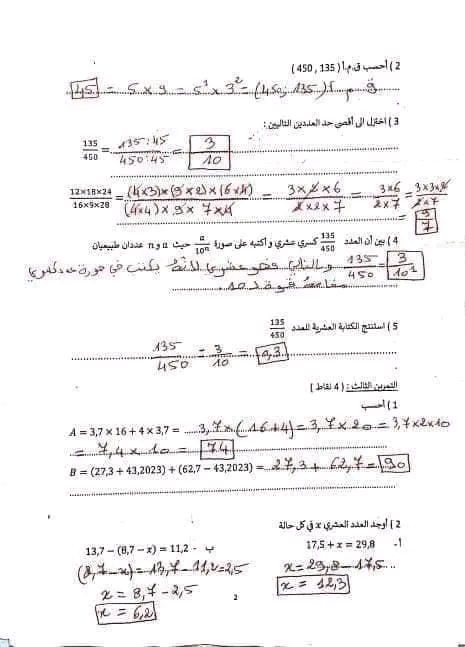 2 ) أحسب ق.م.أ ( 135 , 450 )
ق م أ (135 ; 450) = 3² × 5¹ = 9 × 5 = 45
3 ) اختزل الى أقصى حد العددين التاليين :
135/450 = 135:45/450:45 = 3/10
12×18×24/16×9×28 = (4×3)×(9×2)×(6×4)/(4×4)×9×7×4 = 3×2×6/2×2×7 = 3×6/2×7 = 3×3×2/2×7
= 9/7
4 ) بين أن العدد 135/450 كسري عشري و أكتبه على صورة a/10ⁿ حيث a و n عددان طبيعيان
135/450 = 3/10¹ وبالتالي فهو عشري لأنه يكتب في صورة عدد كسري
مقامه قوة لـ 10
5 ) استنتج الكتابة العشرية للعدد 135/450
135/450 = 3/10 = 0,3
التمرين الثالث : ( 4 نقاط )
1 ) أحسب
A = 3,7 × 16 + 4 × 3,7 = 3,7×(16+4) = 3,7×20 = 3,7×2×10
= 7,4 × 10 = 74
B = (27,3 + 43,2023) + (62,7 − 43,2023) = 27,3 + 62,7 = 90
2 ) أوجد العدد العشري x في كل حالة
أ- 17,5 + x = 29,8
ب - 13,7 − (8,7 − x) = 11,2
x = 29,8 − 17,5
(8,7 − x) = 13,7 − 11,2 = 2,5
x = 12,3
x = 8,7 − 2,5
x = 6,2
2